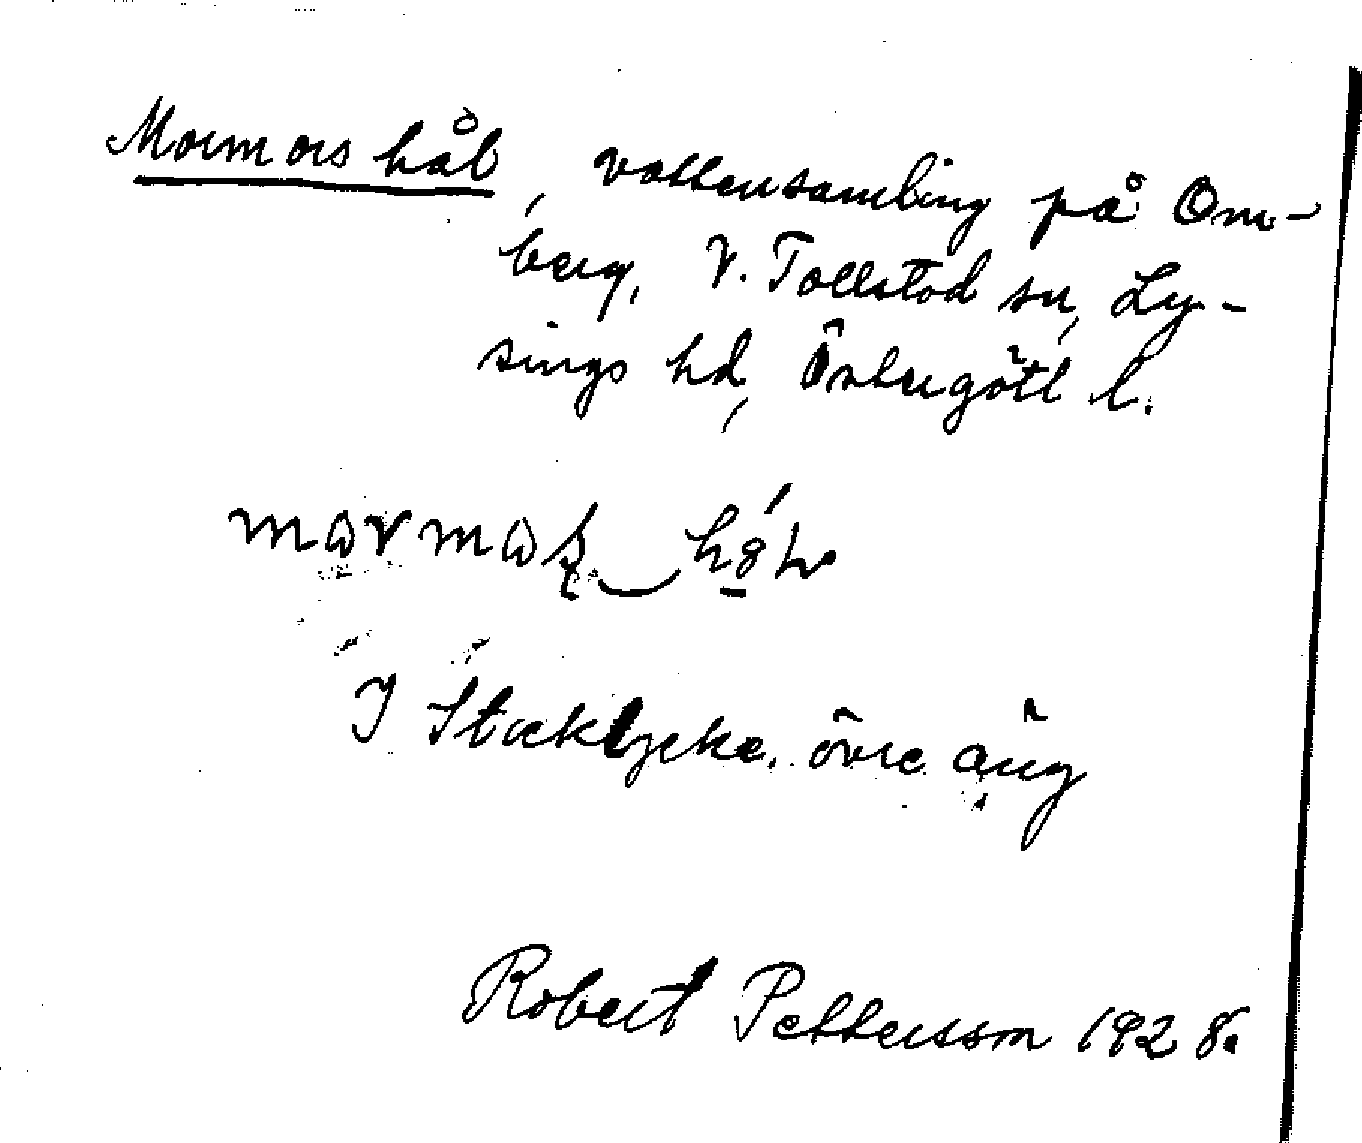 Mormors hål, vattensamling på Om-
berg, V. Tollstad sn, Ly-
sings hd, Östergötl l.
I Stocklycke övre äng
Robert Pettersson 1928.